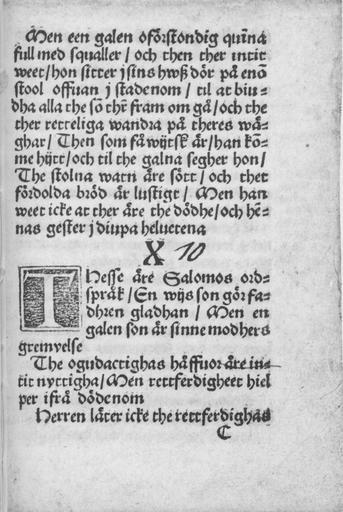 Men een galen oförstondig quīna
full med squaller / och then ther intit
weet / hon sitter j sins hwß dör på enō
stool offuan j stadenom / til at biu-
dha alla the sō thē fram om gå / och the
ther retteliga wandra på theres wä-
ghar / Then som fåwijtsk är / han kō-
me hijtt / och til the galna segher hon /
The stolna watn äre sött / och thet
fördolda bröd är lustigt / Men han
weet icke at ther äre the dödhe / och hē-
nas gester j diupa heluetena
X 10
Thesse äre Salomos ord-
språk / En wijs son gör fa-
dhren gladhan / Men en
galen son är sinne modhers
gremyelse
The ogudactighas häffuor äre in-
tit nyttigha / Men rettferdigheet hiel
per ifrå dödenom
Herren läter icke the rettferdighas
C